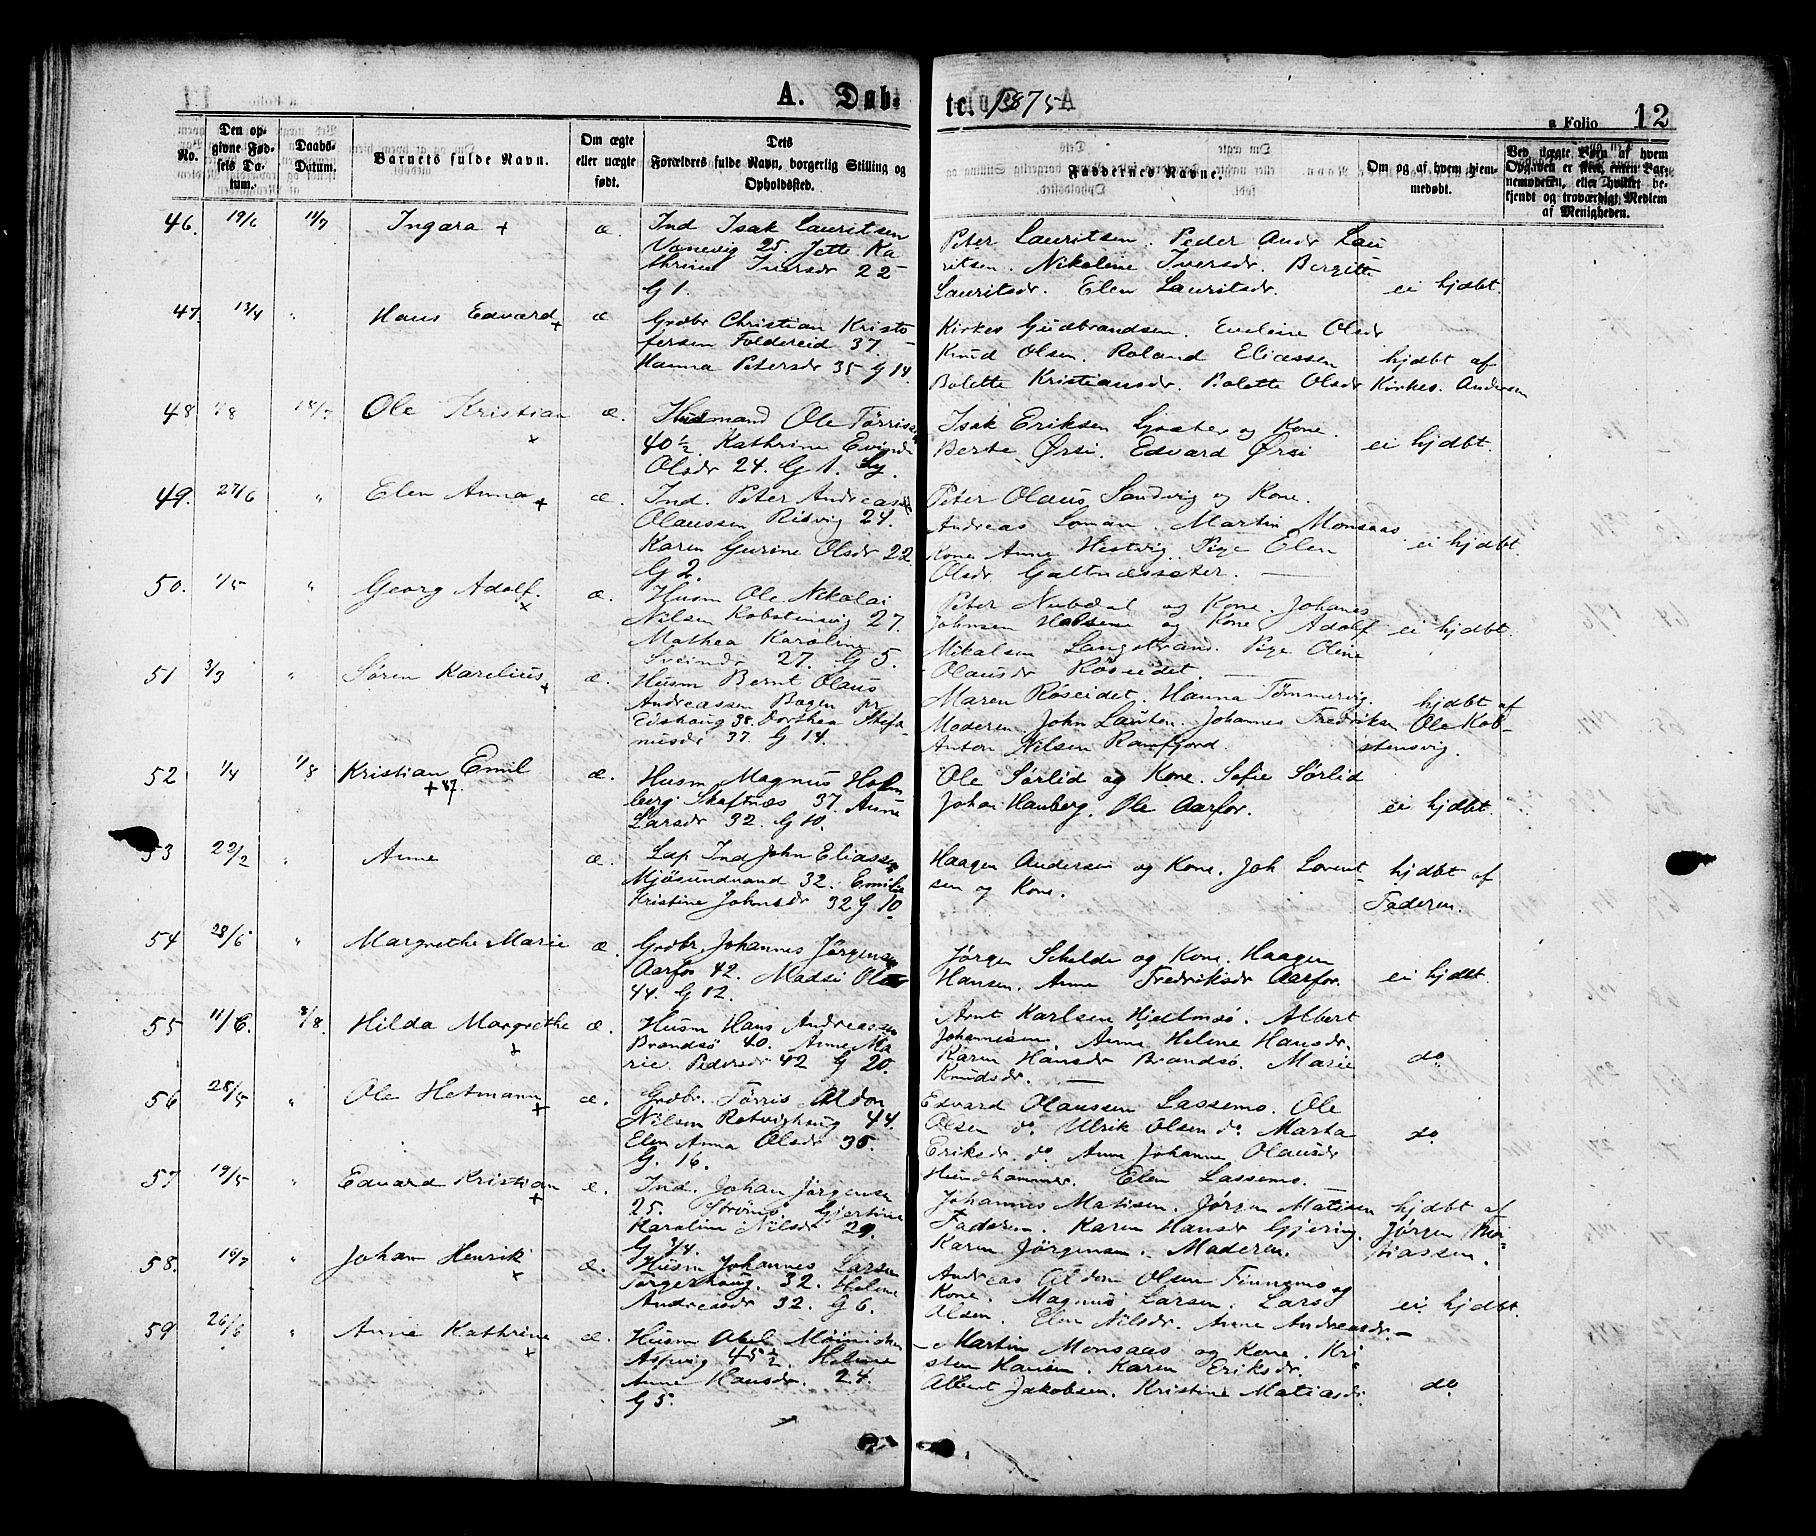 A. Døb-
te. 1875
a Folio 12
No.
Den op-
givne Fød-
sels Da-
tum.
Daabs-
Datum.
Barnets fulde Navn.
Om ægte
eller uægte
født.
Dets
Forældres fulde Navn, borgerlig Stilling og
Opholdssted.
Faddernes Navne.
Om og af hvem hjem-
medøbt.
Ved uægte Børn af hvem
Opgaven er skeet, enten Bar-
nemoderen, eller hvilket be-
kjendt og troværdigt Medlem
af Menigheden.
46. 19/6 11/7 Ingara + æ.
Ind Isak Lauritsen
Vanevig 25 Jette Ka
thrine Iversdr 22
G 1.
Peter Lauritsen. Peder Andr Lau
ritsen. Nikoline Iversdr. Bergitte
Lauritsdr. Elen Lauritsdr.
ei hjdbt.
47. 13/4 " Hans Edvard + æ
Grdbr Christian Kristo
fersen Foldereid 37.
Hanna Petersdr 35 G 14.
Kirkes Gudbrandsen. Eveline Olsdr
Knud Olsen. Roland Eliassen
Bolette Kristiansdr. Bolette Olsdr
hjdbt af
Kirkes. Andersen
48 1/8 18/7 Ole Kristian + æ.
Husmand Ole Tørrisen
40 1/2. Kathrine Evinde
Olsdr 24. G 1.
Isak Eriksen og Kone.
Berte Ørsi. Edvard Ørsi
ei hjdbt.
49. 27/6 " Elen Anna + æ.
Ind. Peter Andreas
Olaussen Ritvig 24.
Karen Gurine Olsdr 22
G 2.
Peter Olaus Sandvig og Kone.
Andreas Loman. Martin Monsaas
Kone Anne Hestvig. Pige Elen
Olsdr Galtnæsseter.
ei hjdbt.
50. 1/5 " Georg Adolf. + æ.
Husm Ole Nikolai
Nilsen Kobstensvig 27.
Mathea Karoline
Sveinsdr 27. G 5.
Peter Nubdal og Kone. Johanes
Johnsen og Kone Adolf
Mikalsen Langstrand. Pige Oline
Olausdr Røseidet
ei hjdbt.
51 3/3 " Søren Karelius + æ.
Husm Bernt Olaus
Andreassen Bogen pr
Eidshaug 38. Dorthea Stefa-
nusdr 37. G 14.
Maren Roseidet. Hanna Tømmervig.
Moderen. John Lauten. Johannes Fredriksen
Anton Nilsen Ramfjord.
hjdbt af
Ole Kob-
stensvig.
52 1/4 1/8 Kristian Emil + 87. æ.
Husm Magnus Holm
berg Skaftnæs 37. Anne
Larsdr 32. G 10.
Ole Sørlid og Kone. Sofie Sørlid
Johan Hauberg. Ole Aarfor.
ei hjdbt.
53 22/2 " Anne æ.
Lap Ind John Eliassen
Mjøsundvand 32. Emilie
Kristine Johnsdr 32 G 10
Haagen Andersen og Kone. Joh Lorent-
sen og Kone.
hjdbt af
Faderen.
54 23/6 " Margrethe Marie æ.
Grdbr. Johannes Jørgensen
Aarfor 42. Madsi Olsdr
44. G 12.
Jørgen Schelde og Kone. Haagen
Hansen. Anne Fredriksdr Aarfor.
ei hjdbt
55 11/6. 8/8. Hilda Margrethe + æ.
Husm Hans Andreassen
Brandsø 40. Anne Ma
rie Pedersdr 42 G 20.
Arnt Karlsen Hjdlmsø. Albert
Johannesen. Anne Helene Hansdr.
Karen Hansdr Brandsø. Marie
Knudsdr.
do.
56 28/5 " Ole Hetmann + æ.
Grdbr. Tørris Aldon
Nilsen Retvighaug 44.
Elen Anna Olsdr 36.
G. 16.
Edvard Olaussen Lassemo. Ole
Olsen do. Ulrik Olsen do. Marta
Eriksdr. do Anne Johanne Olausdr
Hundhammer. Elen Lassemo.
do.
57 19/5 " Edvard Kristian + æ.
Ind. Johan Jørgensen
25. Gjertine
Karoline Nilsdr 29.
G 3/4.
Johannes Matisen. Jørgen Matisen
Faderen. Karen Hansdr Gjering.
Karen Jørgensen. Moderen.
hjdbt af
Jørgen Ma-
tiassen
58. 16/7 " Johan Henrik + æ.
Husm Johannes Larsen
Torgerhaug. 32. Helene
Andreasdr 32. G 6.
Andreas Aldon Olsen Finnemo og
Kone. Magnus Larsen. Lars
Olsen. Elen Nilsdr. Anne Andreasdr.
ei hjdbt.
59 26/6 " Anne Kathrine + æ.
Husm Abel Møinichen
Aspvig 45 1/2. Helene
Anne Hansdr. 24.
G 5.
Martin Monsaas og Kone. Kri-
sten Hansen. Karen Eriksdr.
Albert Jakobsen. Kristine Matiasdr
do.